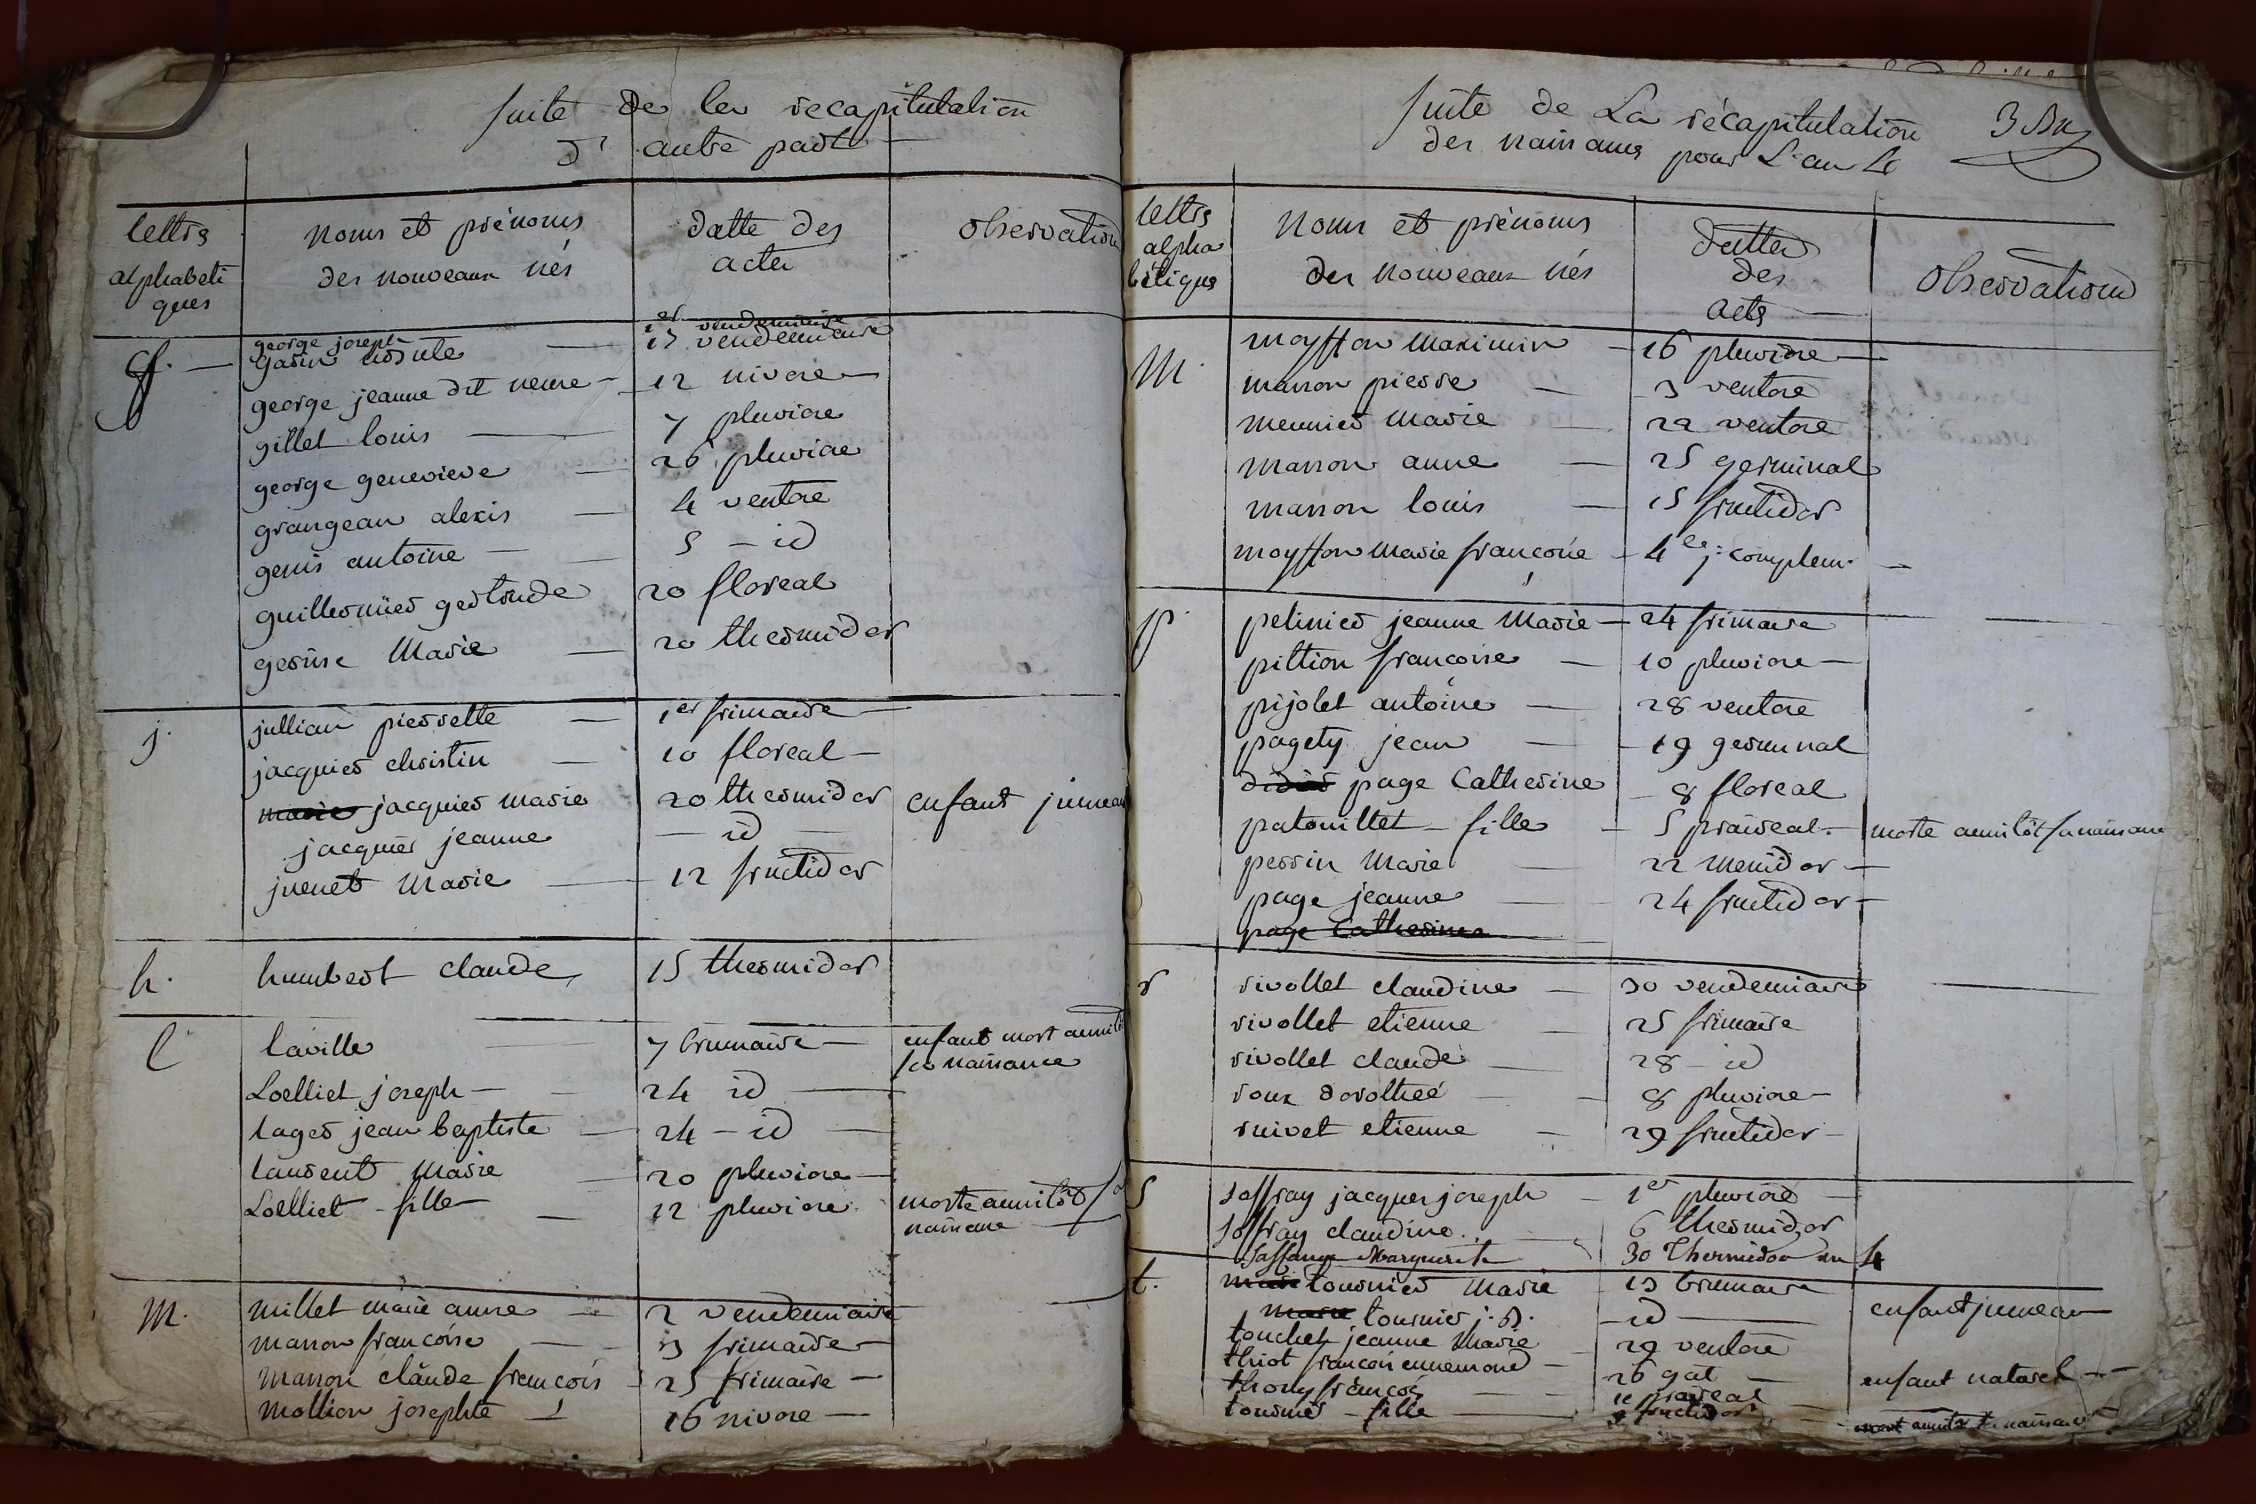 suite de la recapitulation
d'autre part
lettres
alphabeti
ques
noms et prénoms
des nouveaux nés
datte des
actes
observation
g. george joseph 1er vendemiaire
garin ursule 13 vendemiaire
george jeanne dit neme 12 nivose
gillet louis 7 pluviose
george genevieve 26 pluviose
grangean alexis 4 ventose
genis antoine 5 id
guillermier gertrude 20 floreal
Marie 20 thermidor
j. jullian pierrette 1er frimaire
jacquier christin 10 floreal
marie jacquier marie 20 thermidor enfant jumeau
jacquier jeanne id
juenet Marie 12 fructidor
h. humbert claude 15 thermidor
l laville 7 brumaire enfant mort aussitôt
sa naissance
Loelliet joseph 24 id
lager jean baptiste 24 id
laurent Marie 20 pluviose
Loelliet fille 12 pluviose morte aussitôt sa
naissance
M. millet marie anne 2 vendemiaire
masson francoise 13 frimaire
masson claude francois 25 frimaire
mollion josephte 16 nivose
suite de La récapitulation
des naissances pour L'an 4
3
lettres
alpha
bétiques
noms et prénoms
des nouveaux nés
dattes
des
actes
observations
M. moyffon Maximin 16 pluviose
masson pierre 3 ventose
meunier Marie 22 ventose
masson anne 25 germinal
masson louis 15 fructidor
moyffon Marie francoise 4e j: complem.
p. pelinier jeanne Marie 24 frimaire
pittion francoise 10 pluviose
pijolet antoine 28 ventose
pagety jean 19 germinal
didier page Catherine 8 floreal
patouillet fille 5 prairial morte aussitôt sa naissance
perrin Marie 22 messidor
page jeanne 24 fructidor
page Catherine
r rivollet claudine 30 vendemiaire
rivollet etienne 25 frimaire
rivollet claude 28 id
roux dorotheé 8 pluviose
ruivet etienne 29 fructidor
s soffray jacques joseph 1er pluviose
soffray claudine 6 thermidor
Marguerite 30 Thermidor an 4
t. tournier Marie 13 brumaire
marie tournier j. B. id enfant jumeau
touchet jeanne Marie 29 ventose
thiot francois ennemond 26 gal enfant naturel
thony françois prairial
tournier fille fructidor mort aussitôt sa naissance